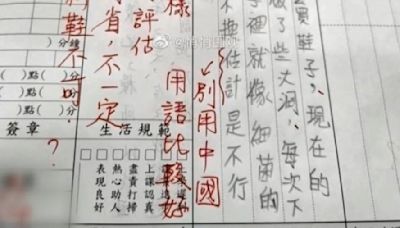 買鞋子，現在的
破了些大洞，每次下
子裡就像細菌的
換估計是不行
別用中國
用語比較好
樣
評估
省，不一定
鞋不可
？
生活規範
上課認真
盡責打掃
熱心助人
表現良好
分鐘
( )點( )分
( )點( )分
簽章